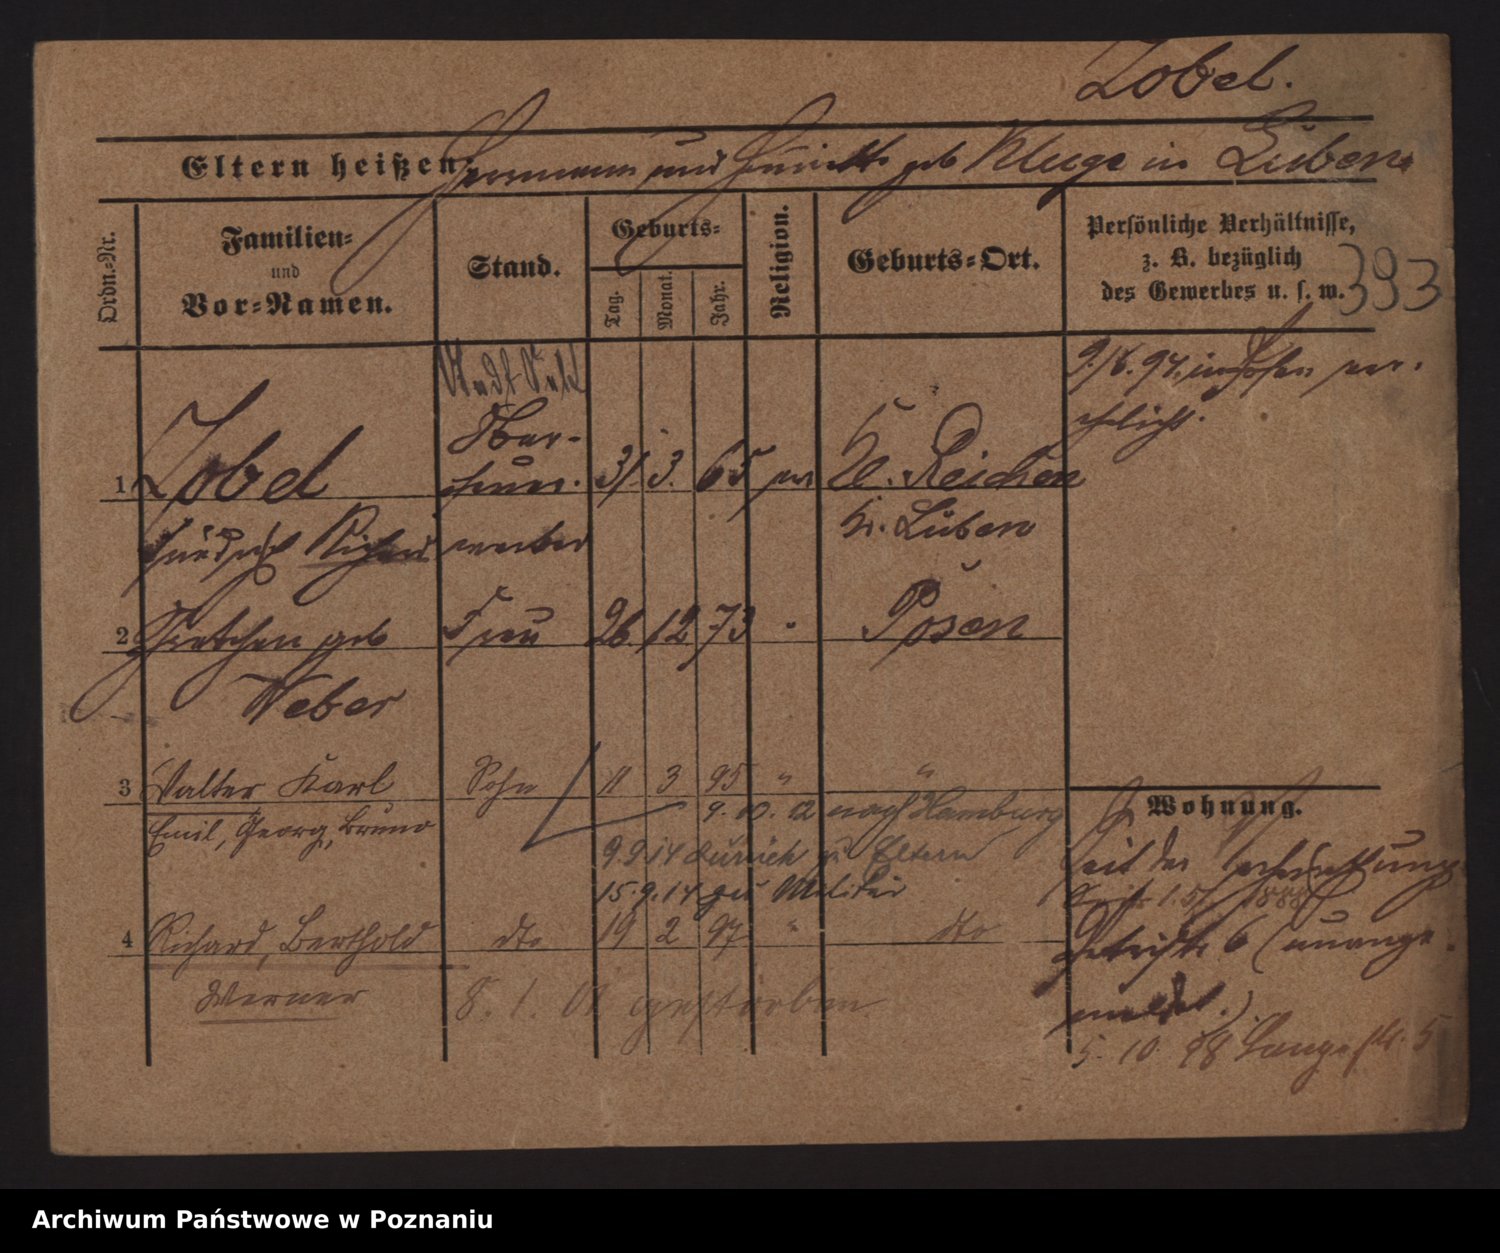 Zobel.
Eltern heißen: Hermann und Henriette geb Kluge in Lüben.
Ordn.-Nr.
Familien-
und
Vor-Namen.
Stand.
Geburts-
Tag.
Monat.
Jahr.
Religion.
Geburts-Ort.
Persönliche Verhältnisse,
z. B. bezüglich
des Gewerbes u. s. w.
393
9./6. 94. in Posen ver-
ehelicht.
Ober-
1 Zobel 31. 3. 65 ev Kl. Reichen
Friedrich Richard
Kr. Lüben
2 Gretchen geb Frau 26 12 73 " Posen
Weber
3 Walter Karl Sohn 11 3 95 " "
Emil, Georg, Bruno
9. 10. 12 nach Hamburg
9.9.14 zurück zu Eltern
15.9.14 zum Militär
4 Richard, Berthold dto 19 2 97 " dto
Werner
8. 1. 01 gestorben
Wohnung.
seit der
6
5. 10. 98 Langestr. 5